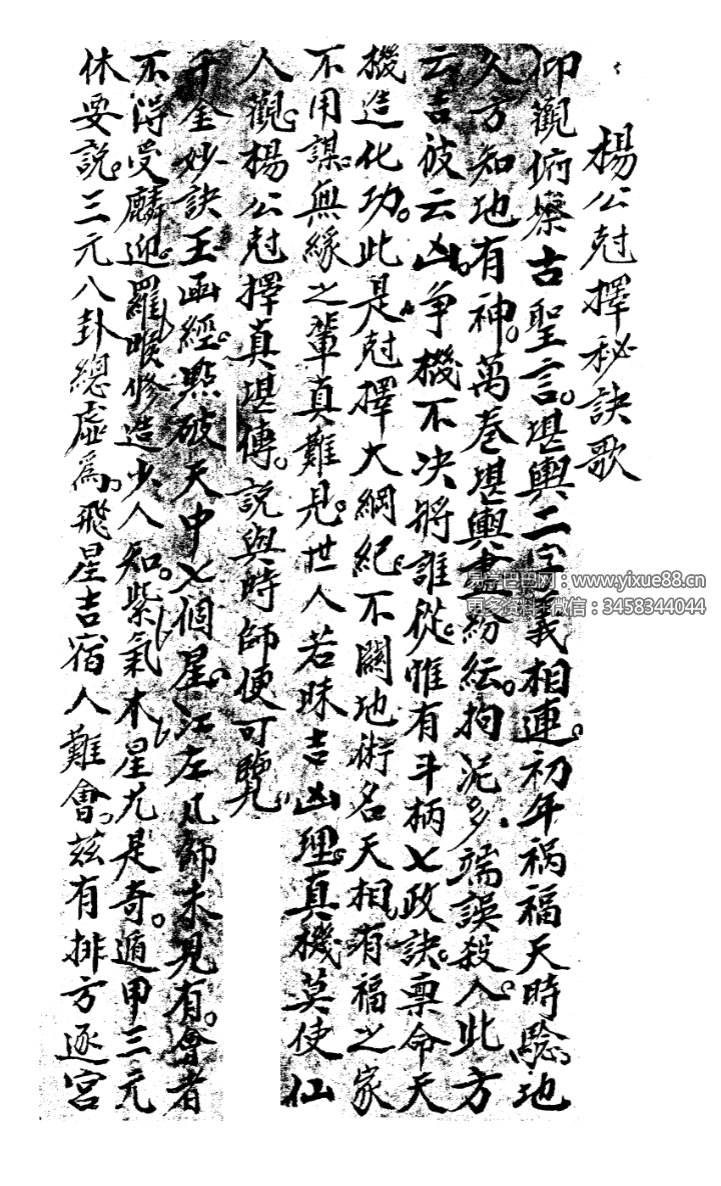 楊公尅擇秘訣歌
仰觀俯察古聖言。堪輿二字義相連。初年禍福天時騐。地
久方知地有神。萬卷堪輿書紛紜。拘泥多端誤殺人。此方
云吉彼云凶。爭機不决將誰從。惟有斗柄七政訣。稟命天
機造化功。此是尅擇大綱紀。不關地術名天相。有福之家
不用謀。無緣之輩真難見。世人若昧吉凶理。真機莫使仙
人觀。楊公尅擇真堪傳。說與時師便可覽
千金妙訣玉函經。點破天中七個星。江左凡師未見有。會者
不得受麟迎。羅睺修造少人知。紫氣木星尤是奇。遁甲三元
休要說。三元八卦總虛為。飛星吉宿人難會。茲有排方逐宮
易学巴巴网：www.yixue88.cn
更多资料+微信：3458344044